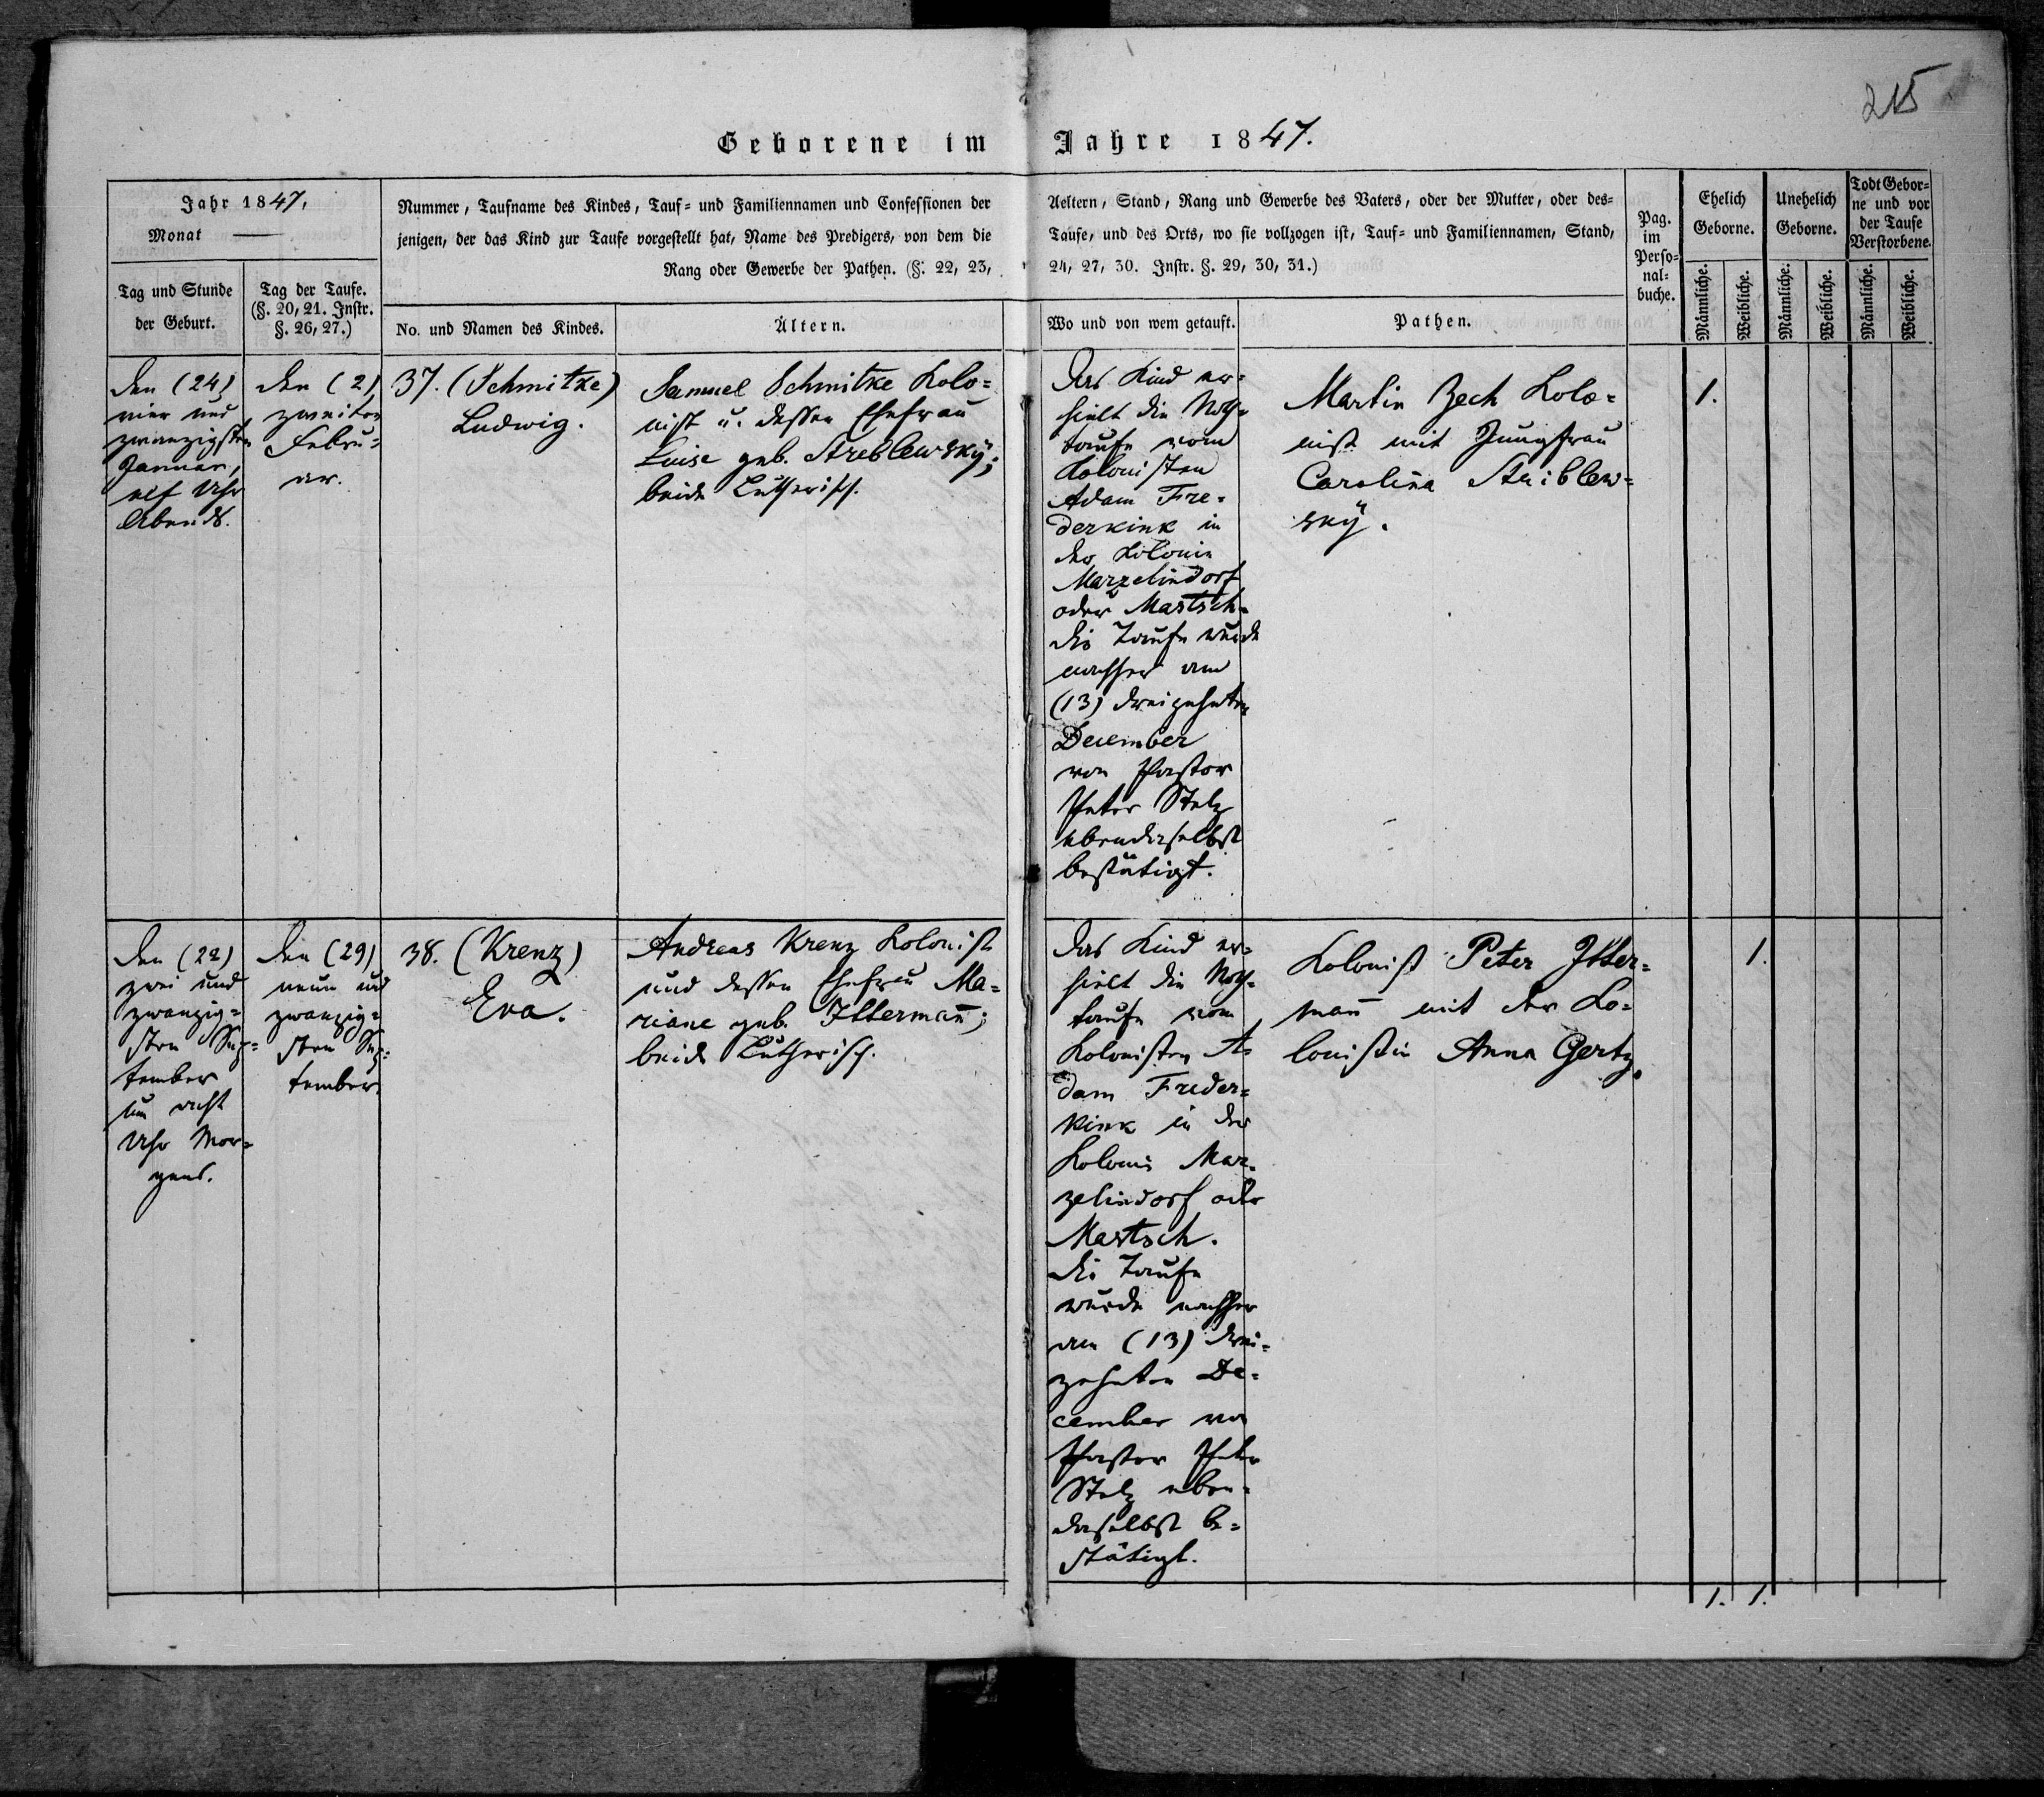 215
Geborene im Jahre 1847.
Jahr 1847.
Monat
Tag und Stunde
der Geburt.
Tag der Taufe.
(§. 20, 21. Instr.
§. 26, 27.)
Nummer, Taufname des Kindes, Tauf= und Familiennamen und Confessionen der
jenigen, der das Kind zur Taufe vorgestellt hat, Name des Predigers, von dem die
Rang oder Gewerbe der Pathen. (§. 22, 23,
No. und Namen des Kindes.
Ältern.
Aeltern, Stand, Rang und Gewerbe des Vaters, oder der Mutter, oder des=
Taufe, und des Orts, wo sie vollzogen ist, Tauf= und Familiennamen, Stand,
24, 27, 30. Instr. §. 29, 30, 31.)
Wo und von wem getauft.
Pathen.
Pag.
im
Perso=
nal=
buche.
Ehelich
Geborne.
Unehelich
Geborne.
Todt Gebor=
ne und vor
der Taufe
Verstorbene.
Männliche.
Weibliche.
Männliche.
Weibliche.
Männliche.
Weibliche.
Den (24)
vier und
zwanzigsten
Januar,
elf Uhr
Abends.
Den (2)
zweiten
Febru=
ar.
37. (Schmitke)
Ludwig.
Samuel Schmitke Kolo=
nist u. dessen Ehefrau
Luise geb. Streblewsky;
beide Lutherisch.
Das Kind er=
hielt die Noth=
taufe vom
Kolonisten
Adam Fre=
derkink in
der Kolonie
Marzelindorf
oder Martsch=
die Taufe wurde
nachher am
(13) dreizehnten
December
von Pastor
Peter Stelz
ebendaselbst
bestätigt.
Martin Zech Kolo=
nist mit Jungfrau
Carolina Striblew=
sky.
1.
Den (22)
zwei und
zwanzig=
sten Sep=
tember
um acht
Uhr Mor=
gens.
Den (29)
neun und
zwanzig=
sten Sep=
tember.
38. (Krenz)
Eva.
Andreas Krenz Kolonist
und dessen Ehefrau Ma=
riane geb. Ittermañ;
beide Lutherisch.
Das Kind er=
hielt die Noth=
taufe vom
Kolonisten A=
dam Freder=
kink in der
Kolonie Mar=
zelindorf oder
Martsch.
die Taufe
wurde nachher
am (13) drei=
zehnten De=
cember von
Pastor Peter
Stelz eben=
daselbst be=
stätigt.
Kolonist Peter Itter=
mañ mit der Ko=
lonistin Anna Gertz.
1.
1. 1.